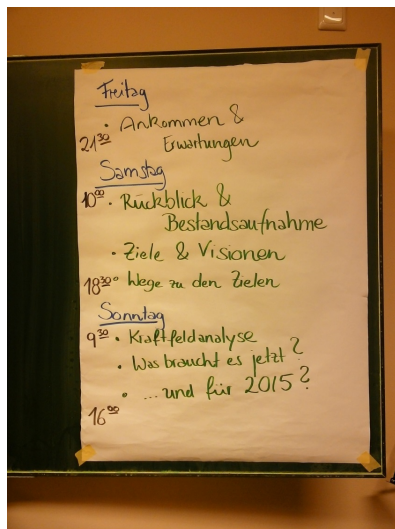 Freitag
· Ankommen &
21³⁰ Erwartungen
Samstag
10⁰⁰ · Rückblick &
Bestandsaufnahme
· Ziele & Visionen
18³⁰ · Wege zu den Zielen
Sonntag
9³⁰ · Kraftfeldanalyse
· Was braucht es jetzt?
· ...und für 2015?
16⁰⁰